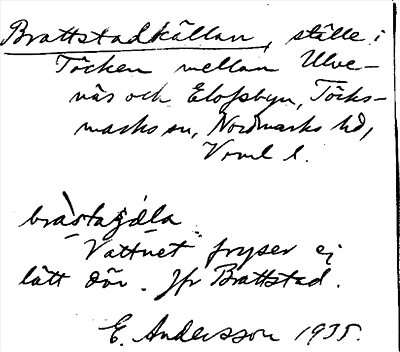 Brattstadkällan, ställe i
Töcken mellan Ulve-
näs och Elofsbyn, Töcks-
marks sn, Nordmarks hd,
Vrml l.
brastaʒ́ȧ̀la
Vattnet fryser ej
lätt där. Jfr Brattstad.
E. Andersson 1935.